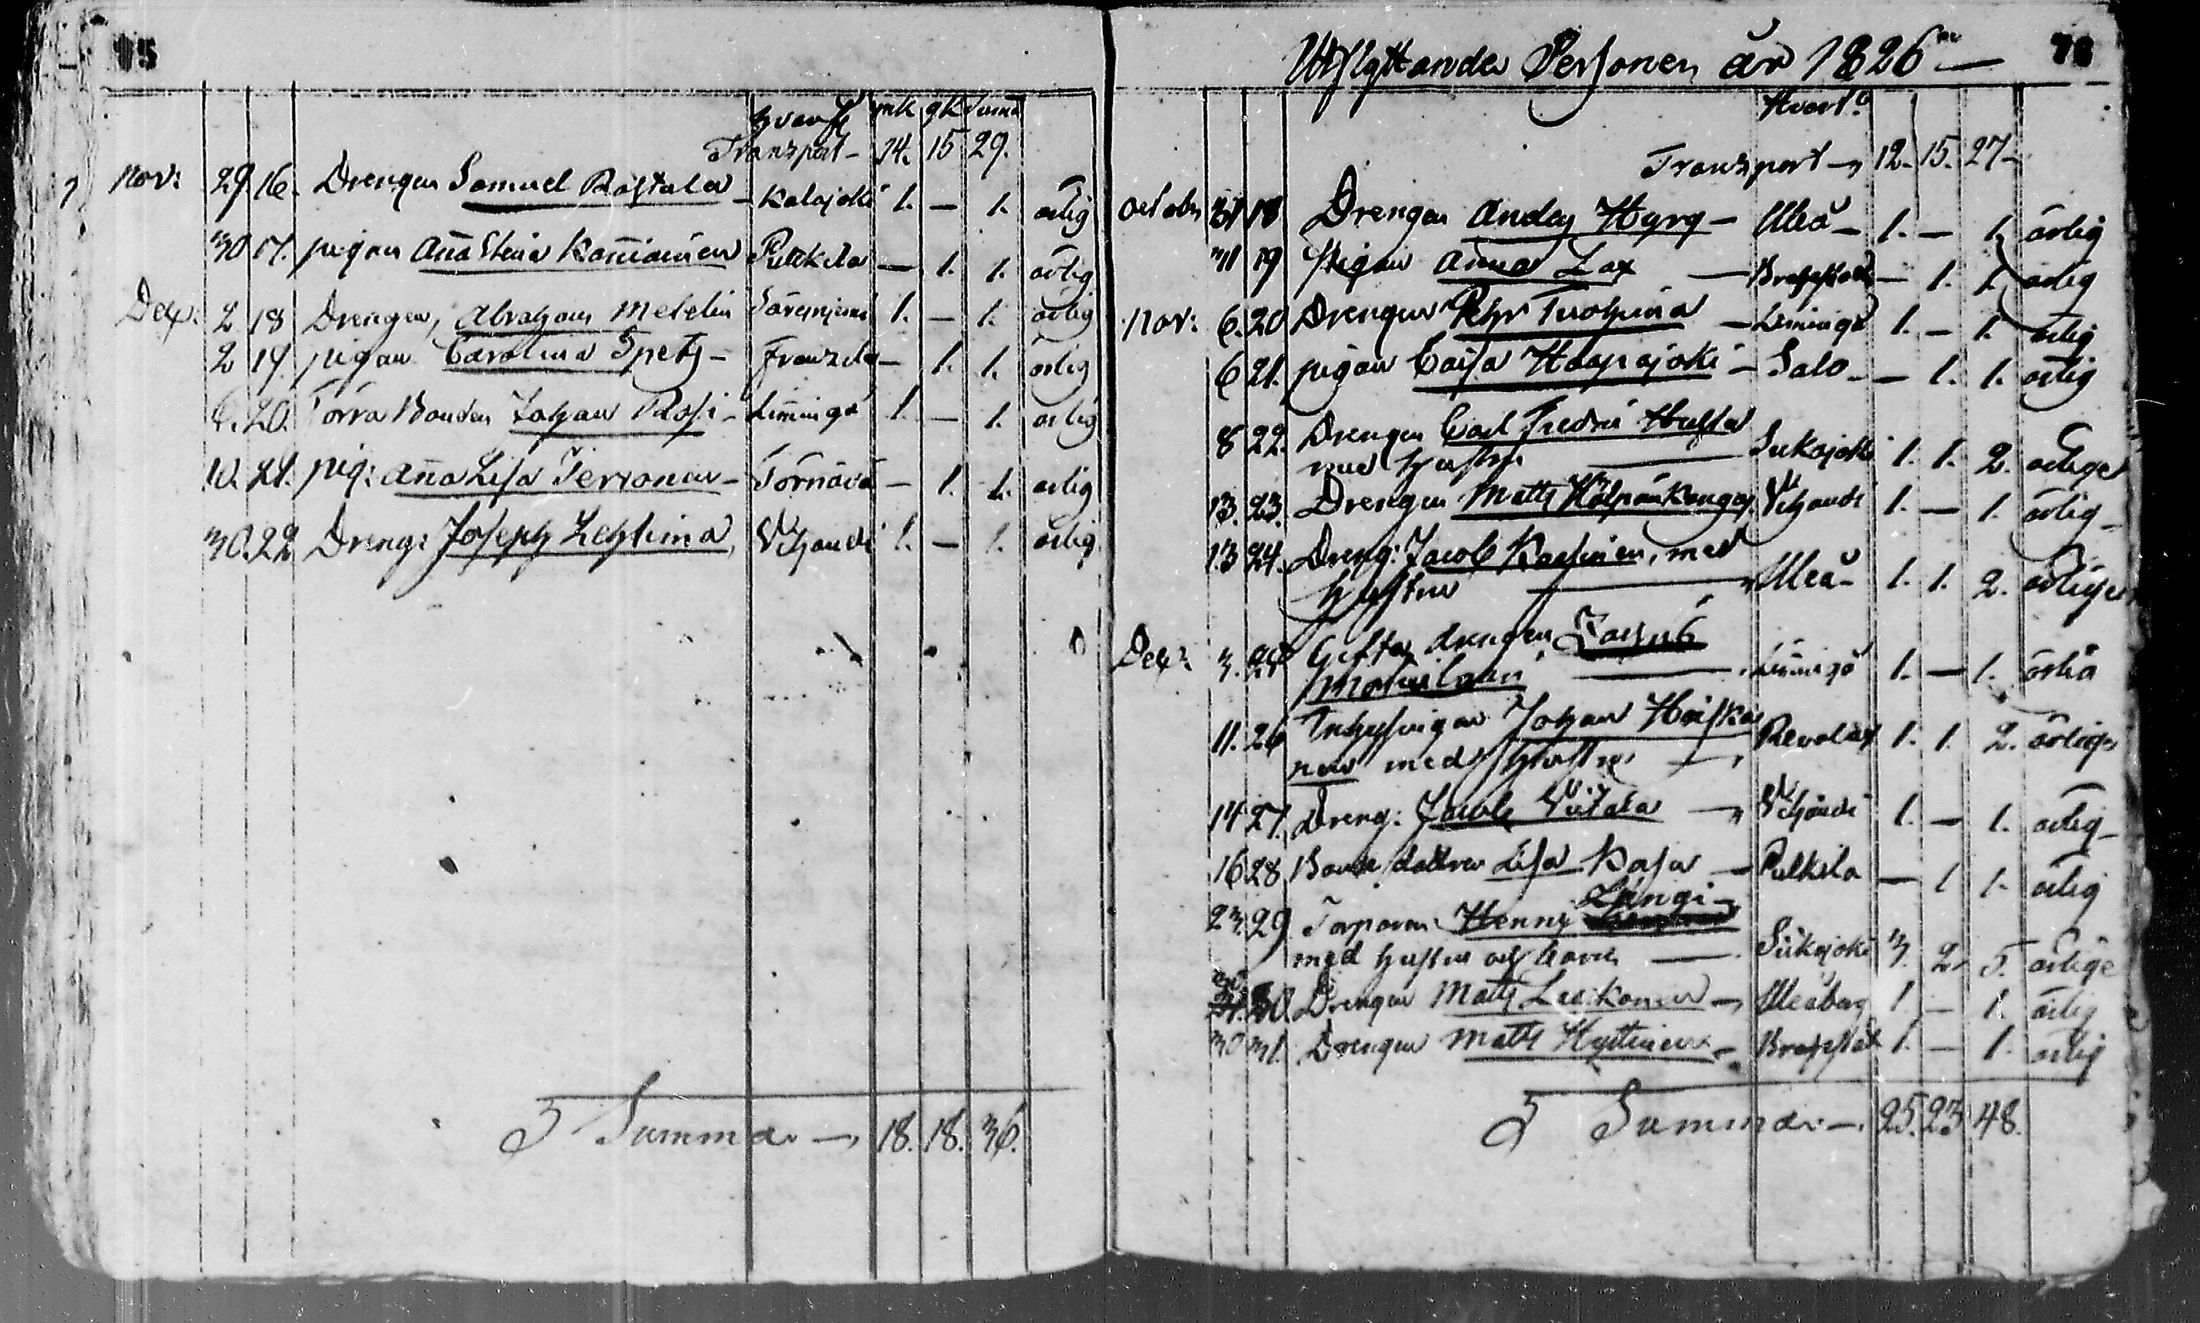 75
hvarifr mk qk Summa
Transport - 14. 15 29.
Nov: 29 16. Drengen Samuel Rastala - Kalajoki 1. - 1. ärlig
30 17. pigan Aña Stina Kaniainen Pulkkila - 1. 1. ärlig
Dex: 2 18 Drengen, Abraham Metelin Säresniemi 1. - 1. ärlig
2 19. pigan Carolina Spetz - Frantzila - 1. 1. ärlig
20. Torra Bonden Johan Rossi - Limingo 1. - 1. ärlig
10. 21. pig: Aña Lisa Terronen - Törnävä - 1. 1. ärlig
30. 22. Dreng: Joseph Lehtima, Vihandi 1. - 1. ärlig
Summa - 18. 18. 36.
Utflyttande Personer år 1826 -
76
Hvart
Transport - 12. 15. 27 -
octobr 31 18 Drengen Anders Hyry - Uleå - 1. - 1. ärlig
31 19 Pigan Anna Lax - - 1. 1. ärlig
Nov: 6. 20 Drengen Pehr Tuohina - Limingo 1. - 1. ärlig
6 21. pigan Caisa Haapajoki - Salo - - 1. 1. ärlig
8 22. Drengen Carl Fredric
med hustru - Siikajoki 1. 1. 2. ärliga
13. 23. Drengen Matts Vihandi 1. - 1. ärlig -
13 24. Dreng: Jacob, med
hustru - Uleå - 1. 1. 2. ärlige
Dex: 3. 25 Gifta drengen Zachris
- Limingo 1. - 1. ärlig
11. 26 Inhysingen Johan Heiska
nen med hustru - Revolax 1. 1. 2. ärlige
14 27. Dreng: Jacob Viitala - Vihandi 1. - 1. ärlig -
16 28 Bonde dottren Lisa Kasa - Pulkkila - 1 1. ärlig
Längi -
23. 29 Torparen Henric
med hustru och barn - Siikajoki 3. 2. 5. ärlige
30 Drengen Matts Leskonen - Uleåborg 1. - 1. ärlig
30 31. Drengen Matts Hyttinen - 1. - 1. ärlig
Summa - 25. 23. 48.